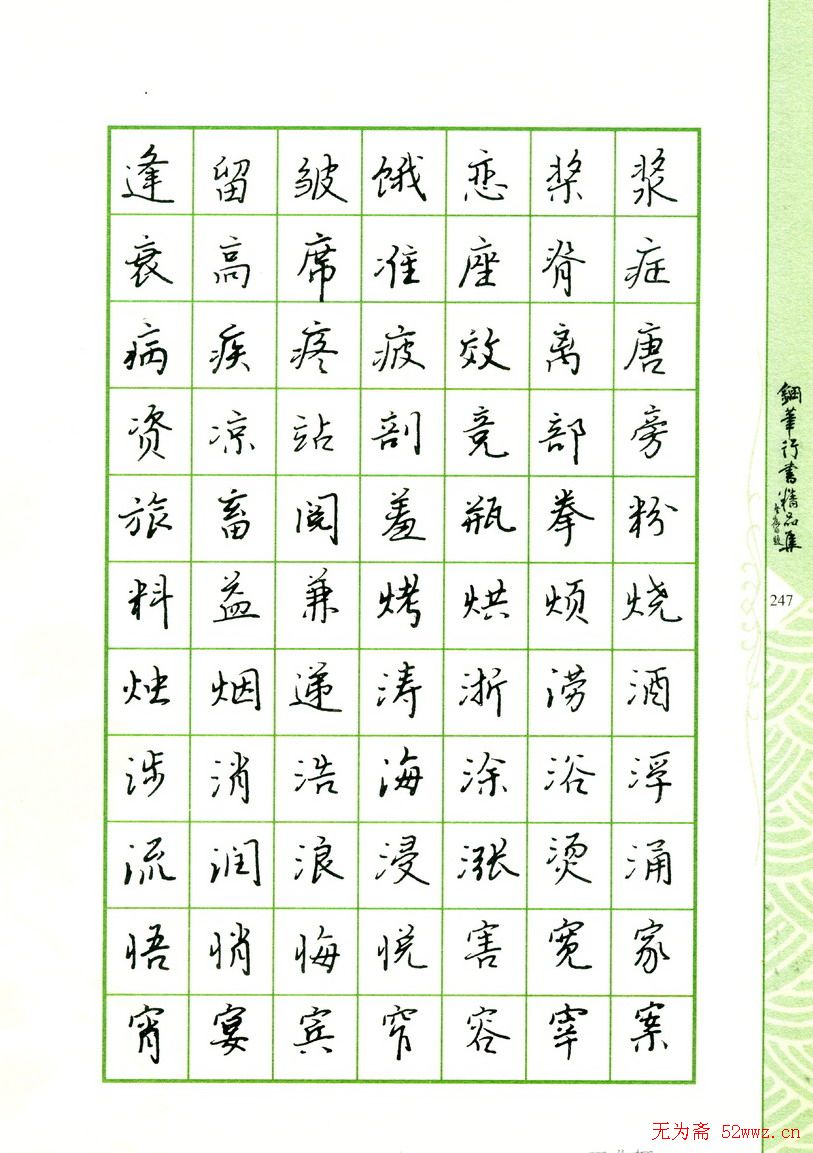 逢留皱饿恋桨浆
衰高席准座脊症
病疾疼疲效离唐
资凉站剖竞部旁
旅畜阅羞瓶拳粉
料益兼烤烘烦烧
烛烟递涛浙涝酒
涉消浩海涂浴浮
流润浪浸涨烫涌
悟悄悔悦害宽家
宵宴宾窄容宰案
钢笔行书精品集
247
无为斋 52wwz.cn